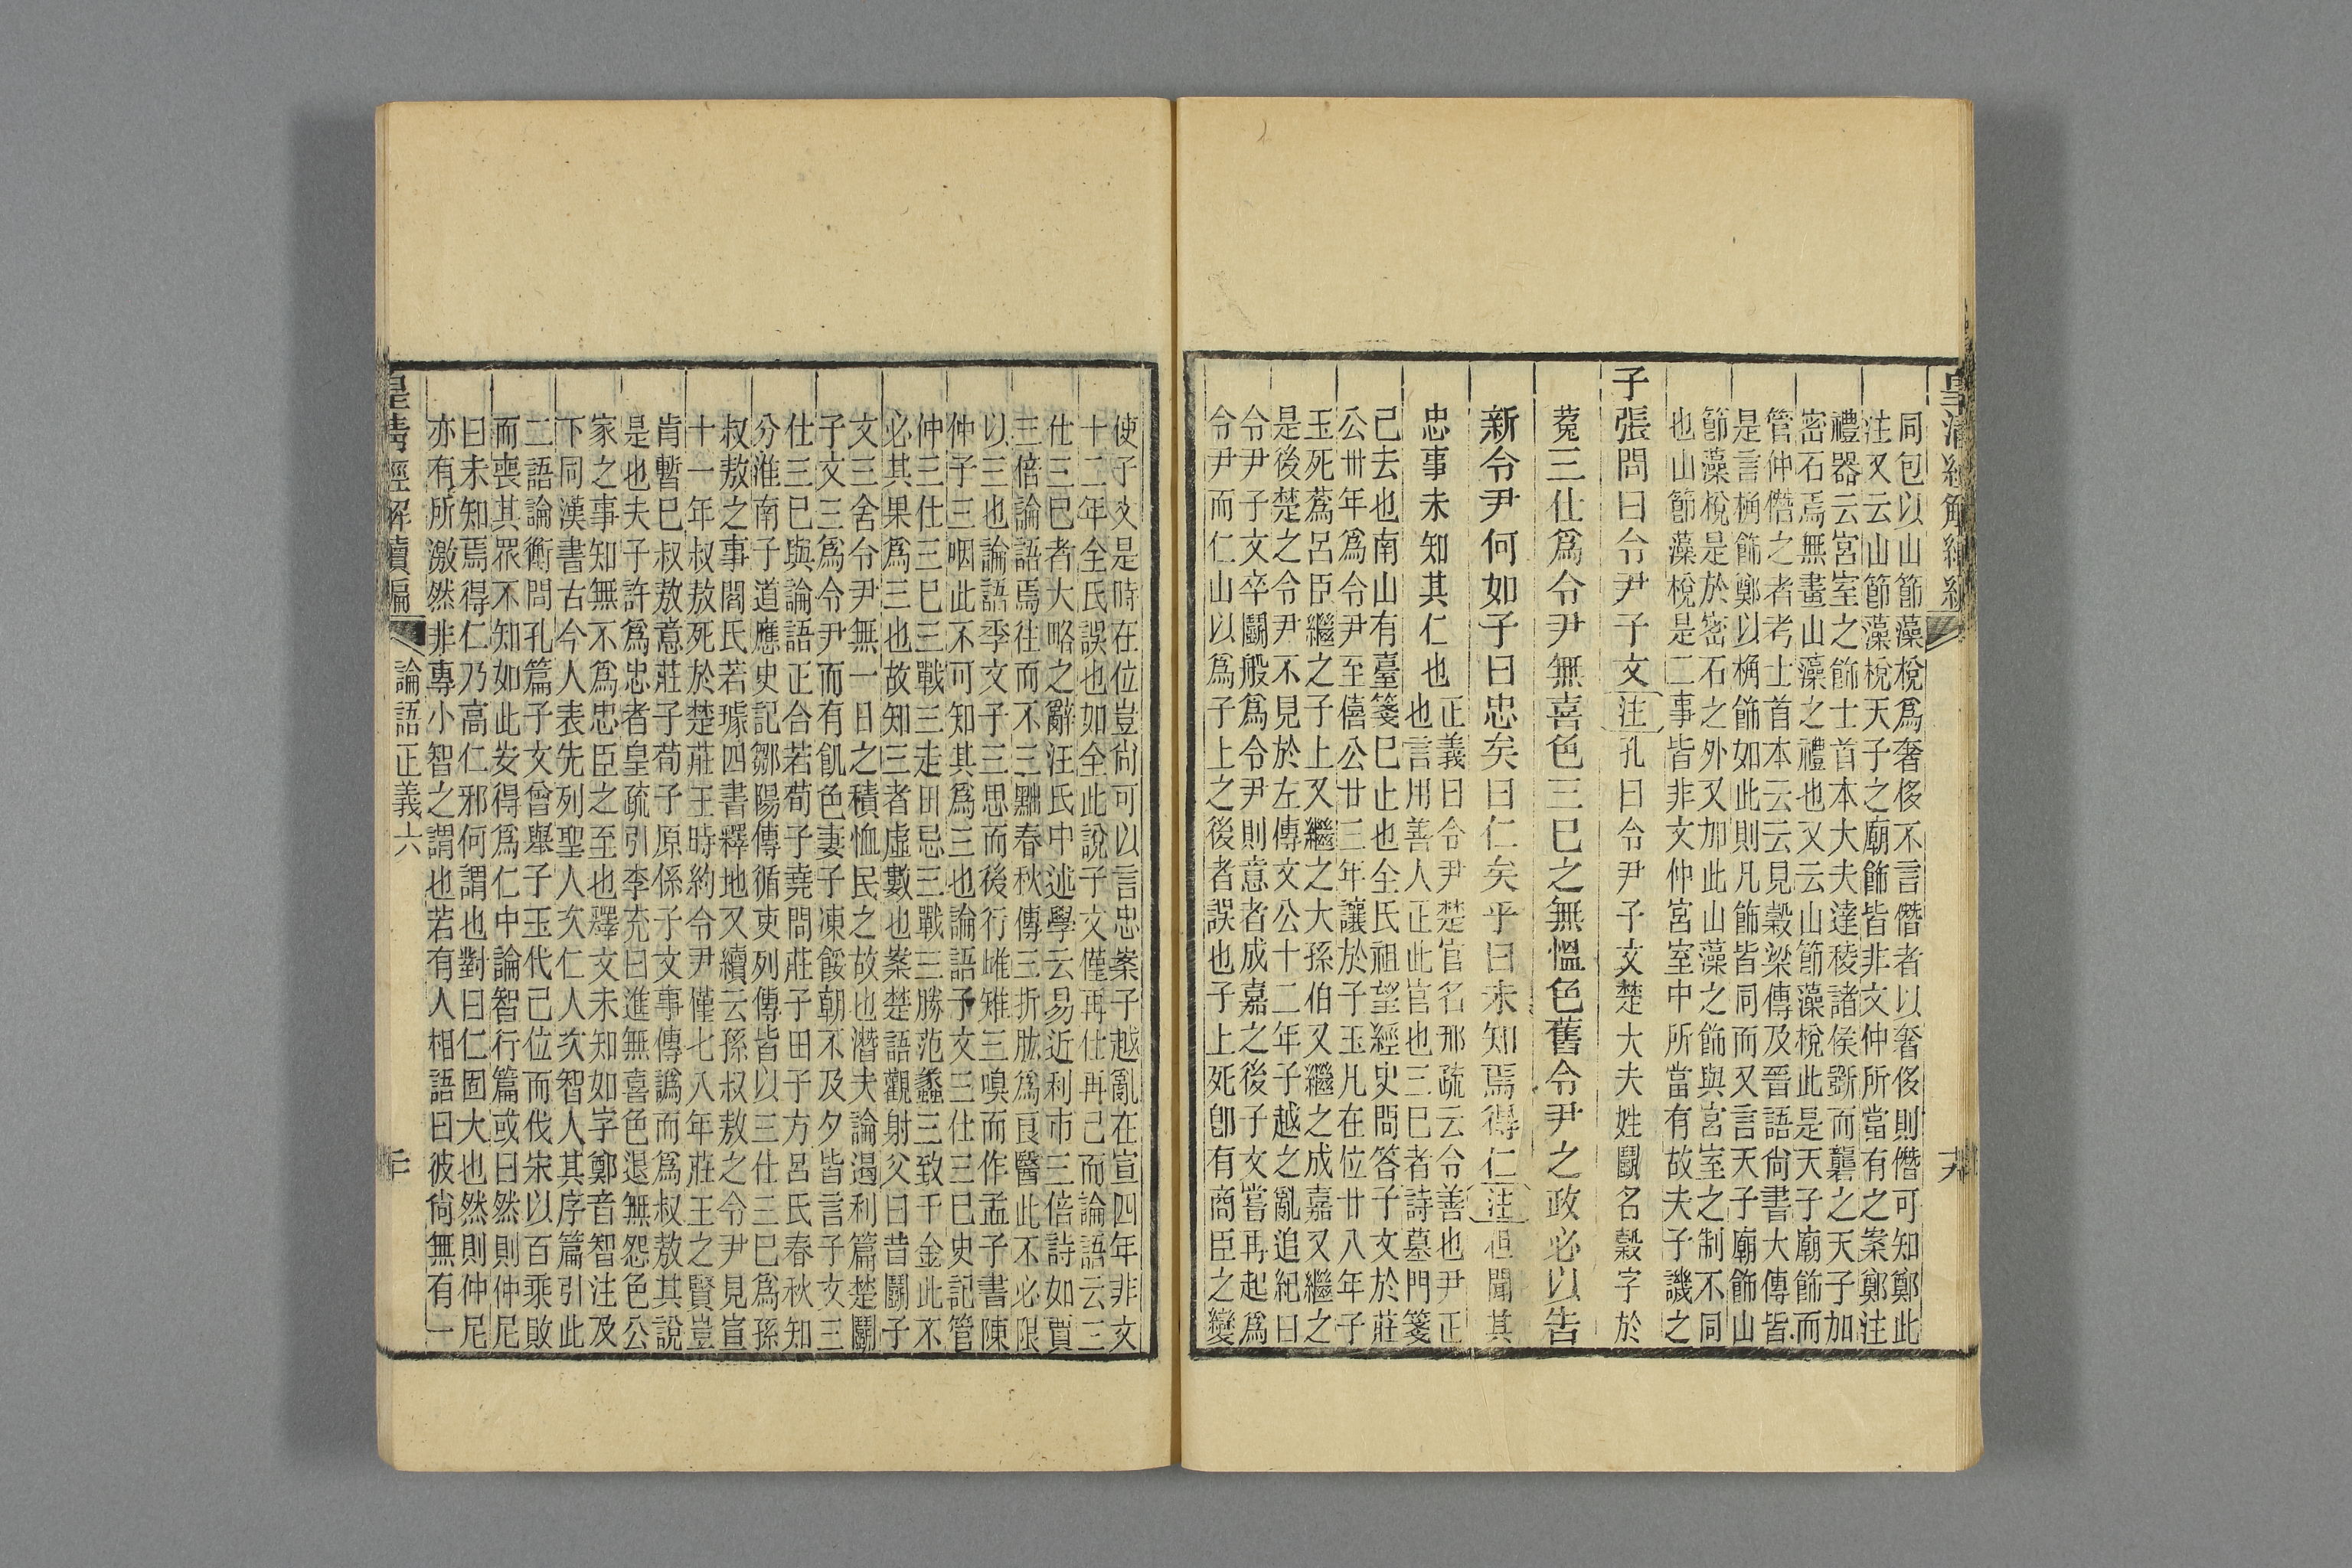 皇清經解續編
十九
同包以山節藻梲爲奢侈不言僭者以奢侈則僭可知鄭此
注又云山節藻梲天子之廟飾皆非文仲所當有之案鄭注
禮器云宮室之飾士首本大夫達稜諸侯斲而礱之天子加
密石焉無畫山藻之禮也又云山節藻梲此是天子廟飾而
管仲僭之者考士首本云云見穀梁傳及晉語尙書大傳皆
是言桷飾鄭以桷飾如此則凡飾皆同而又言天子廟飾山
節藻梲是於密石之外又加此山藻之飾與宮室之制不同
也山節藻梲是二事皆非文仲宮室中所當有故夫子譏之
子張問曰令尹子文注孔曰令尹子文楚大夫姓鬭名穀字於
菟三仕爲令尹無喜色三已之無慍色舊令尹之政必以告
新令尹何如子曰忠矣曰仁矣乎曰未知焉得仁注但聞其
忠事未知其仁也
正義曰令尹楚官名邢疏云令善也尹正
也言用善人正此官也三已者詩墓門箋
已去也南山有臺箋已止也全氏祖望經史問答子文於莊
公卅年爲令尹至僖公廿三年讓於子玉凡在位廿八年子
玉死蒍呂臣繼之子上又繼之大孫伯又繼之成嘉又繼之
是後楚之令尹不見於左傳文公十二年子越之亂追紀曰
令尹子文卒鬭般爲令尹則意者成嘉之後子文嘗再起爲
令尹而仁山以爲子上之後者誤也子上死卽有商臣之變
使子文是時在位豈尙可以言忠案子越亂在宣四年非文
十二年全氏誤也如全此說子文僅再仕再已而論語云三
仕三已者大略之辭汪氏中述學云易近利市三倍詩如賈
三倍論語焉往而不三黜春秋傳三折肱爲良醫此不必限
以三也論語季文子三思而後行雌雉三嗅而作孟子書陳
仲子三咽此不可知其爲三也論語子文三仕三已史記管
仲三仕三已三戰三走田忌三戰三勝范蠡三致千金此不
必其果爲三也故知三者虛數也案楚語觀射父曰昔鬭子
文三舍令尹無一日之積恤民之故也潛夫論遏利篇楚鬭
子文三爲令尹而有飢色妻子凍餒朝不及夕皆言子文三
仕三已與論語正合若荀子堯問莊子田子方呂氏春秋知
分淮南子道應史記鄒陽傳循吏列傳皆以三仕三已爲孫
叔敖之事閻氏若璩四書釋地又續云孫叔敖之令尹見宣
十一年叔敖死於楚莊王時約令尹僅七八年莊王之賢豈
肯暫已叔敖意莊子荀子原係子文事傳譌而爲叔敖其說
是也夫子許爲忠者皇疏引李充曰進無喜色退無怨色公
家之事知無不爲忠臣之至也釋文未知如字鄭音智注及
下同漢書古今人表先列聖人次仁人次智人其序篇引此
二語論衡問孔篇子文曾舉子玉代己位而伐宋以百乘敗
而喪其眾不知如此安得爲仁中論智行篇或曰然則仲尼
曰未知焉得仁乃高仁邪何謂也對曰仁固大也然則仲尼
亦有所激然非專小智之謂也若有人相語曰彼尙無有一
皇清經解續編
論語正義六